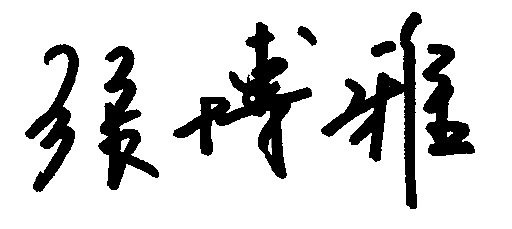 張博雅